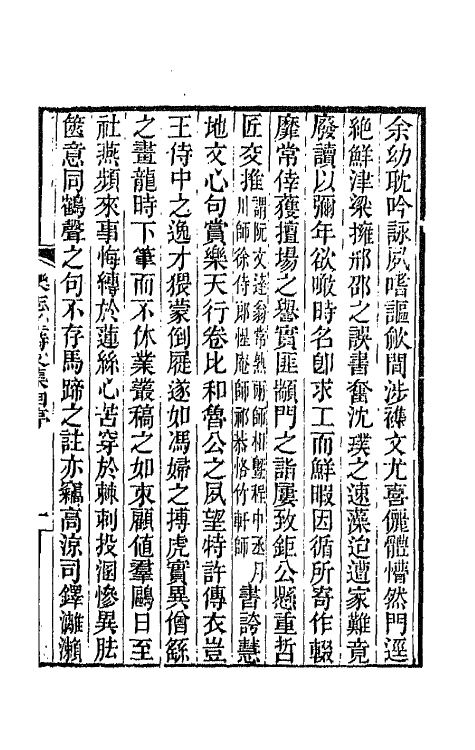 余幼耽吟詠夙嗜謳歈間涉襍文尤喜儷體懵然門逕
絶鮮津梁擁邢邵之誤書奮沈璞之速藻迨遭家難竟
廢讀以彌年欲噉時名卽求工而鮮暇因循所寄作輟
靡常倖獲擅場之譽實匪顓門之詣屢致鉅公懸重哲
匠交推謂阮文達翁常熟兩師祁曁程中丞月川師徐侍郎惺庵師祁恭恪竹軒師書誇慧
地文心句賞樂天行卷比和魯公之夙望特許傳衣豈
王侍中之逸才猥蒙倒屣遂如馮婦之搏虎實異僧繇
之畫龍時下筆而不休業叢稿之如束顧値羣鷗日至
社燕頻來事悔縛於蓮絲心苦穿於棘刺投溷慘異胠
篋意同鶴聲之句不存馬蹄之註亦竊高涼司鐸灕瀨
樂志堂文集自序
一